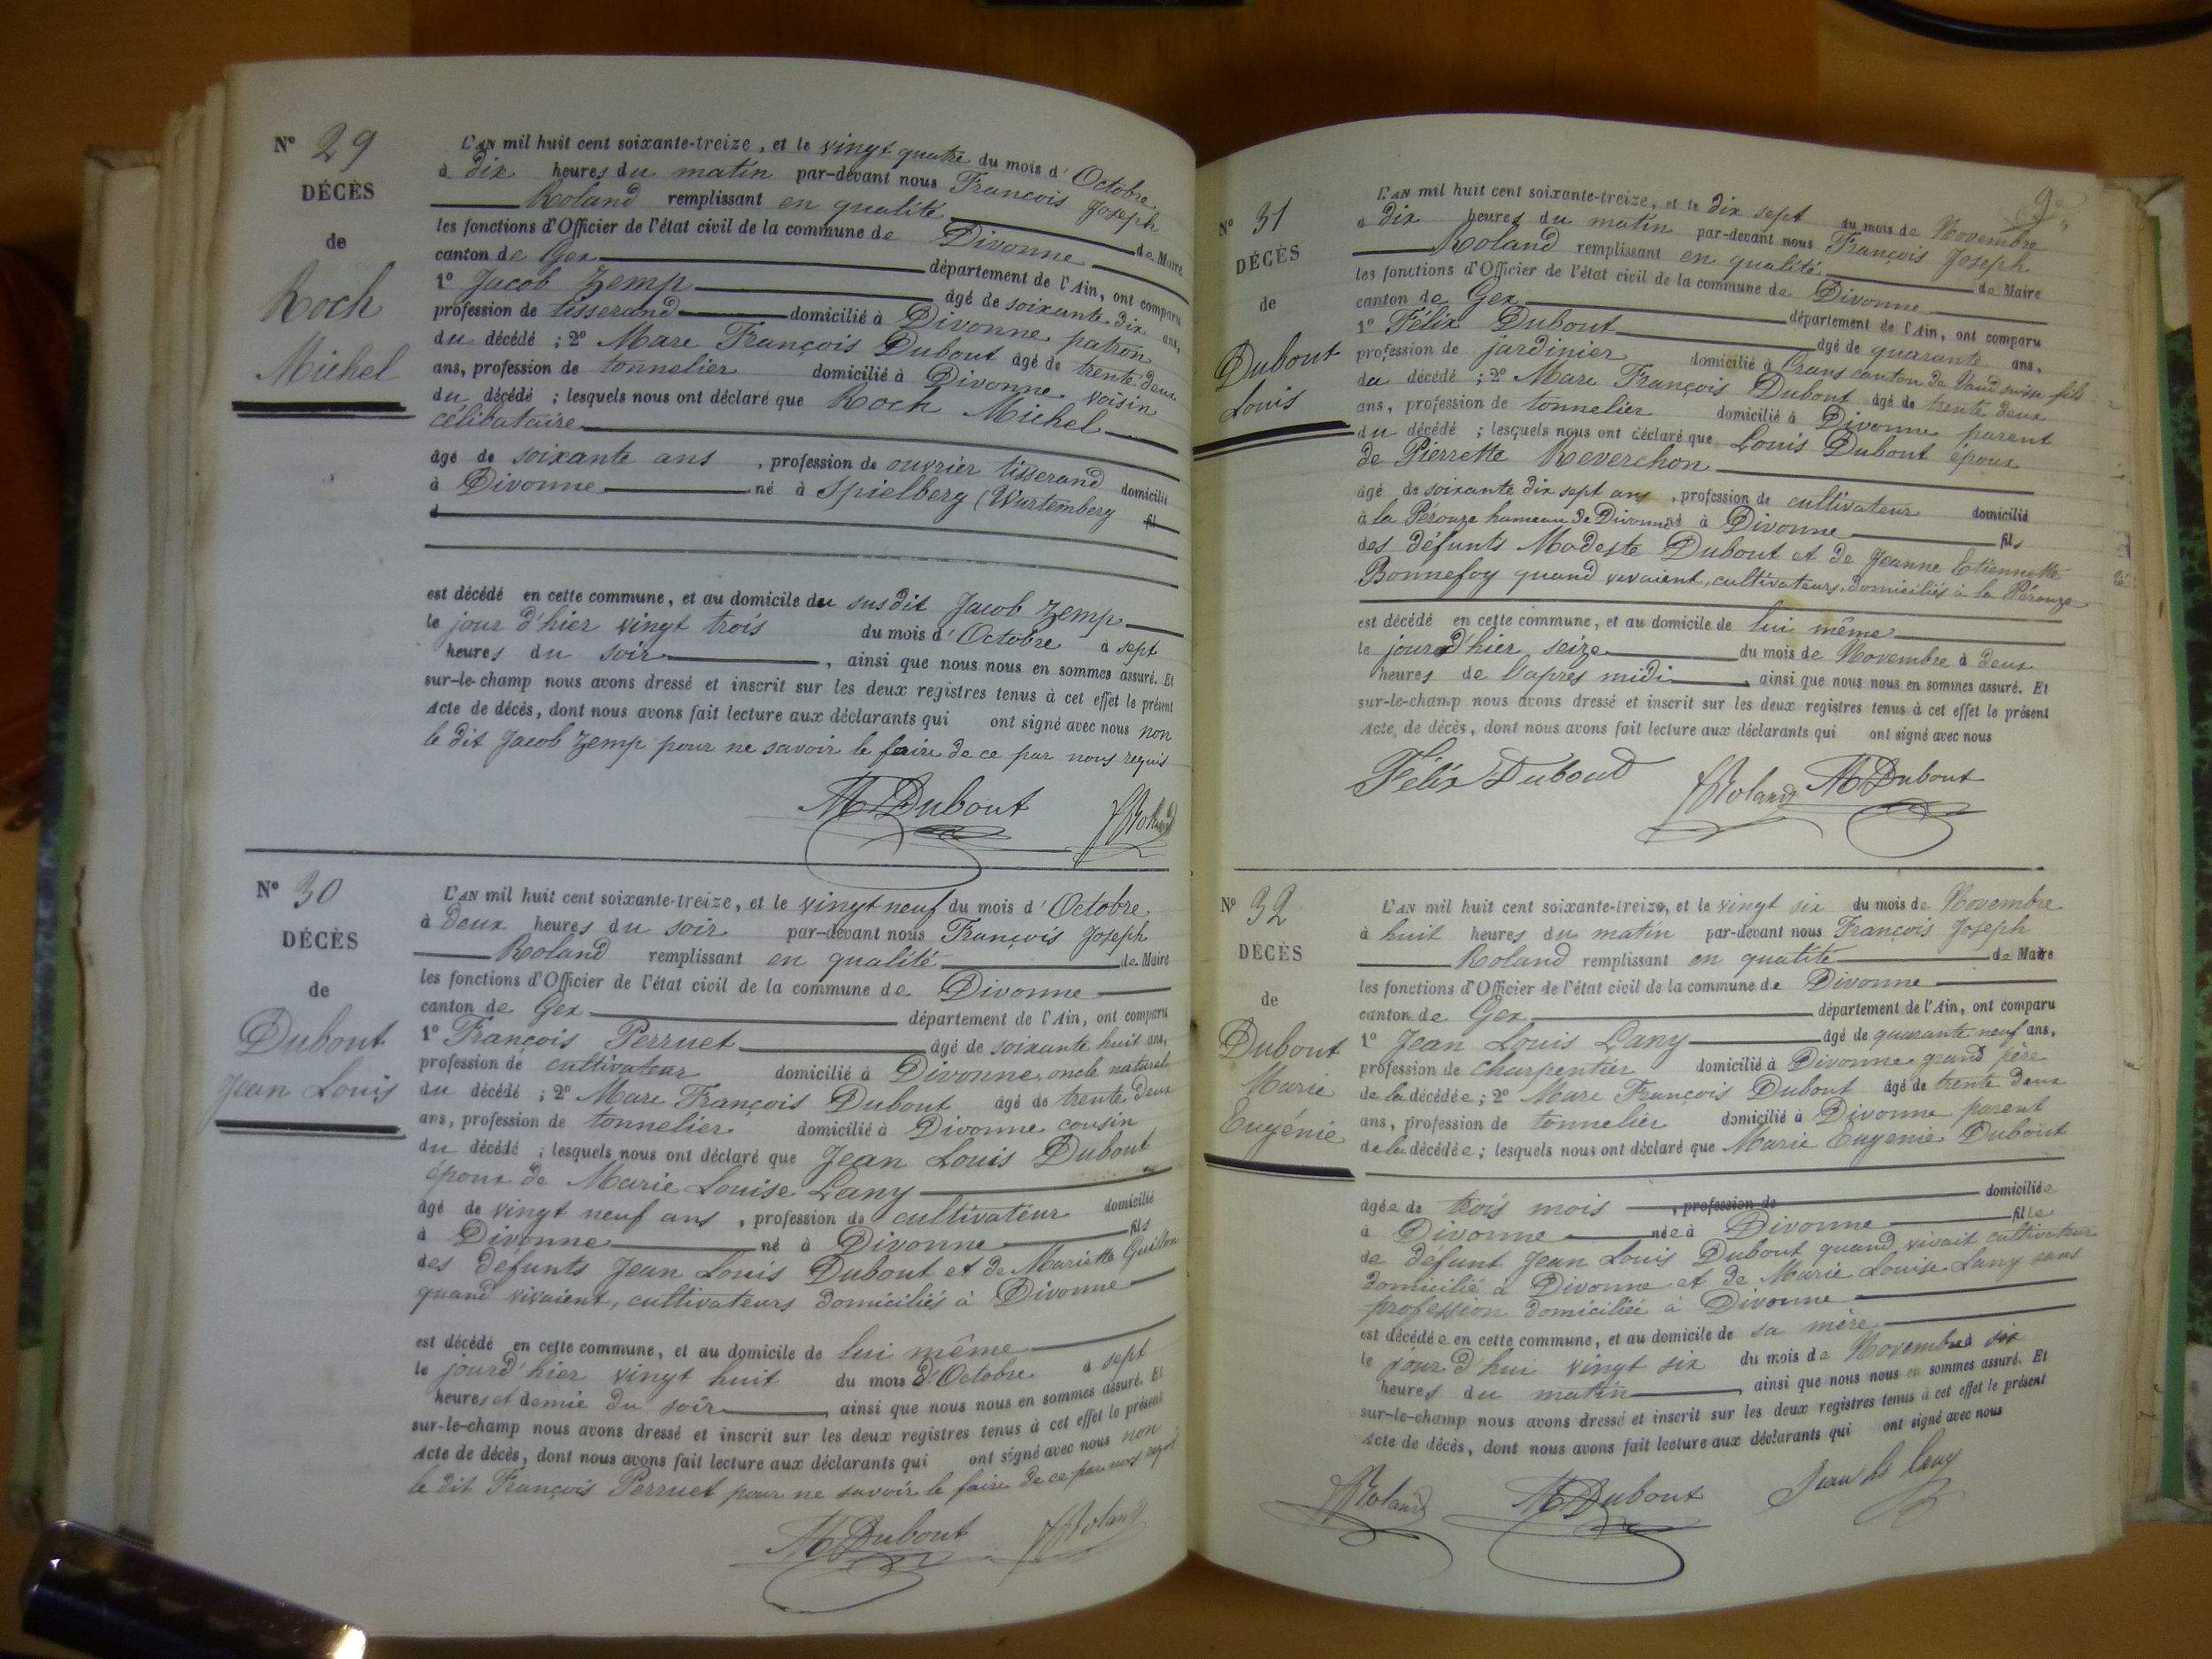 N° 29
DÉCÈS
de
Roch
Michel
L'AN mil huit cent soixante-treize, et le vingt quatre du mois d'Octobre
à dix heures du matin par-devant nous François Joseph
Roland remplissant en qualité de Maire
les fonctions d'Officier de l'état civil de la commune de Divonne
canton de Gex département de l'Ain, ont comparu
1° Jacob Zemp âgé de soixante dix ans,
profession de tisserand domicilié à Divonne patron
du décédé ; 2° Marc François Dubout âgé de trente deux
ans, profession de tonnelier domicilié à Divonne voisin
du décédé ; lesquels nous ont déclaré que Roch Michel
célibataire
âgé de soixante ans , profession de ouvrier tisserand domicilié
à Divonne né à Spielberg (Wurtemberg fil
d
est décédé en cette commune, et au domicile du susdit Jacob Zemp
le jour d'hier vingt trois du mois d'Octobre à sept
heures du soir , ainsi que nous nous en sommes assuré. Et
sur-le-champ nous avons dressé et inscrit sur les deux registres tenus à cet effet le présent
Acte de décès, dont nous avons fait lecture aux déclarants qui ont signé avec nous non
le dit Jacob Zemp pour ne savoir le faire de ce par nous requis
M Dubout
JRoland
N° 30
DÉCÈS
de
Dubout
Jean Louis
L'AN mil huit cent soixante-treize, et le vingt neuf du mois d'Octobre
à deux heures du soir par-devant nous François Joseph
Roland remplissant en qualité de Maire
les fonctions d'Officier de l'état civil de la commune de Divonne
canton de Gex département de l'Ain, ont comparu
1° François Perruet âgé de soixante huit ans,
profession de cultivateur domicilié à Divonne, oncle naturel
du décédé ; 2° Marc François Dubout âgé de trente deux
ans, profession de tonnelier domicilié à Divonne cousin
du décédé ; lesquels nous ont déclaré que Jean Louis Dubout
époux de Marie Louise Lany
âgé de vingt neuf ans , profession de cultivateur domicilié
à Divonne né à Divonne fils
des défunts Jean Louis Dubout et de Mariette Guillon
quand vivaient, cultivateurs domiciliés à Divonne
est décédé en cette commune, et au domicile de lui même
le jour d'hier vingt huit du mois d'Octobre à sept
heures et demie du soir , ainsi que nous nous en sommes assuré. Et
sur-le-champ nous avons dressé et inscrit sur les deux registres tenus à cet effet le présent
Acte de décès, dont nous avons fait lecture aux déclarants qui ont signé avec nous non
le dit François Perruet pour ne savoir le faire de ce par nous requis
M Dubout JRoland
N° 31
DÉCÈS
de
Dubout
Louis
L'AN mil huit cent soixante-treize, et le dix sept du mois de Novembre
à dix heures du matin par-devant nous François Joseph
Roland remplissant en qualité de Maire
les fonctions d'Officier de l'état civil de la commune de Divonne
canton de Gex département de l'Ain, ont comparu
1° Félix Dubout âgé de quarante ans,
profession de jardinier domicilié à Crans canton de Vaud suisse fils
du décédé ; 2° Marc François Dubout âgé de trente deux
ans, profession de tonnelier domicilié à Divonne parent
du décédé ; lesquels nous ont déclaré que Louis Dubout époux
de Pierrette Reverchon
âgé de soixante dix sept ans , profession de cultivateur domicilié
à la Pérouze hameau de Divonne né à Divonne fils
des défunts Modeste Dubout et de Jeanne Etiennette
Bonnefoy quand vivaient, cultivateurs, domiciliés à la Pérouze
est décédé en cette commune, et au domicile de lui même
le jour d'hier seize du mois de Novembre à deux
heures de l'après midi , ainsi que nous nous en sommes assuré. Et
sur-le-champ nous avons dressé et inscrit sur les deux registres tenus à cet effet le présent
Acte de décès, dont nous avons fait lecture aux déclarants qui ont signé avec nous
Félix Duboud JRoland M Dubout
N° 32
DÉCÈS
de
Dubout
Marie
Eugénie
L'AN mil huit cent soixante-treize, et le vingt six du mois de Novembre
à huit heures du matin par-devant nous François Joseph
Roland remplissant en qualité de Maire
les fonctions d'Officier de l'état civil de la commune de Divonne
canton de Gex département de l'Ain, ont comparu
1° Jean Louis Lany âgé de quarante neuf ans,
profession de Charpentier domicilié à Divonne grand père
de la décédée ; 2° Marc François Dubout âgé de trente deux
ans, profession de tonnelier domicilié à Divonne parent
de la décédée ; lesquels nous ont déclaré que Marie Eugénie Dubout
âgée de trois mois , profession de domiciliée
à Divonne née à Divonne fille
de défunt Jean Louis Dubout quand vivait cultivateur
domicilié à Divonne et de Marie Louise Lany sans
profession domiciliée à Divonne
est décédée en cette commune, et au domicile de sa mère
le jour d'hui vingt six du mois de Novembre à six
heures du matin , ainsi que nous nous en sommes assuré. Et
sur-le-champ nous avons dressé et inscrit sur les deux registres tenus à cet effet le présent
Acte de décès, dont nous avons fait lecture aux déclarants qui ont signé avec nous
JRoland M Dubout Jean Ls Lany